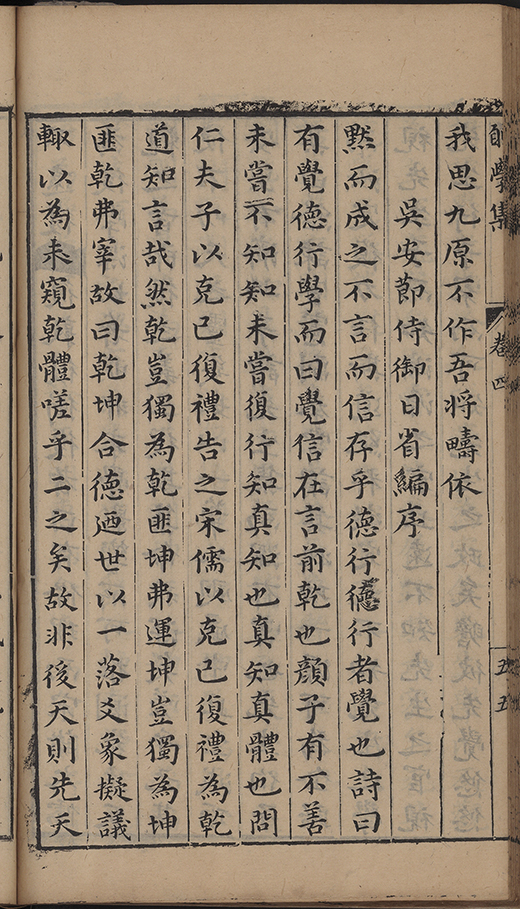 學集 卷四 五五
我思九原不作吾将疇依
吳安節侍御日省編序
默而成之不言而信存乎德行德行者覺也詩曰
有覺德行學而曰覺信在言前乾也顔子有不善
未嘗不知知未嘗復行知真知也真知真體也問
仁夫子以克己復禮告之宋儒以克己復禮為乾
道知言哉然乾豈獨為乾匪坤弗運坤豈獨為坤
匪乾弗宰故曰乾坤合德迺世以一落爻象擬議
輙以為未窺乾體嗟乎二之矣故非後天則先天